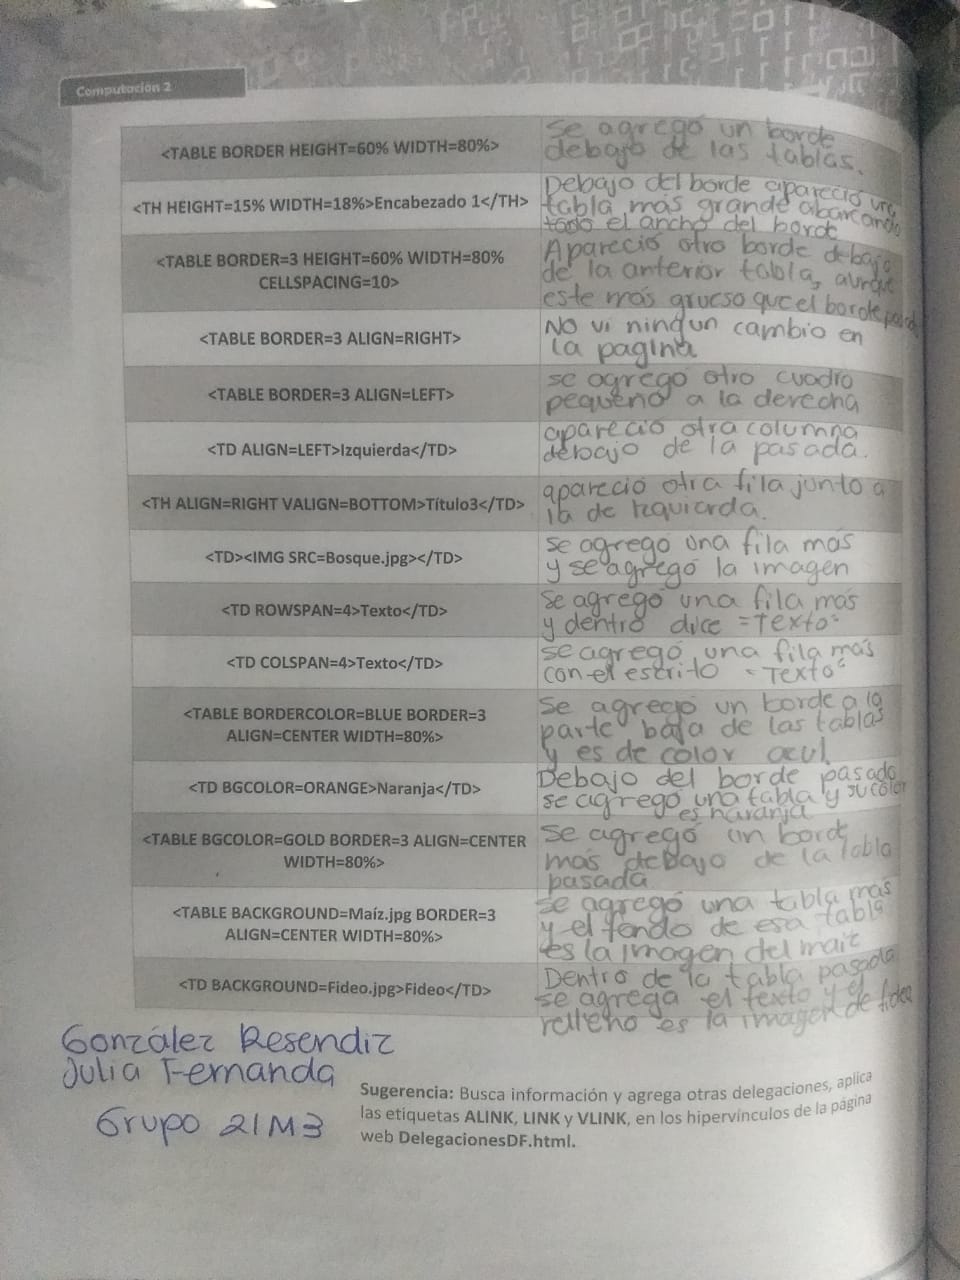 Computación 2
<TABLE BORDER HEIGHT=60% WIDTH=80%>
se agregó un borde
debajo de las tablas.
<TH HEIGHT=15% WIDTH=18%>Encabezado 1</TH>
Debajo del borde apareció una
tabla más grande abarcando
todo el ancho del borde
<TABLE BORDER=3 HEIGHT=60% WIDTH=80%
CELLSPACING=10>
Apareció otro borde debajo
de la anterior tabla, aunque
este más grueso que el borde pasado
<TABLE BORDER=3 ALIGN=RIGHT>
No vi ningun cambio en
la pagina
<TABLE BORDER=3 ALIGN=LEFT>
se agregó otro cuadro
pequeño a la derecha
<TD ALIGN=LEFT>Izquierda</TD>
apareció otra columna
debajo de la pasada.
<TH ALIGN=RIGHT VALIGN=BOTTOM>Título3</TD>
apareció otra fila junto a
la de Izquierda.
<TD><IMG SRC=Bosque.jpg></TD>
se agregó una fila más
y se agregó la imagen
<TD ROWSPAN=4>Texto</TD>
se agregó una fila más
y dentro dice "Texto"
<TD COLSPAN=4>Texto</TD>
se agregó una fila más
con el escrito "Texto"
<TABLE BORDERCOLOR=BLUE BORDER=3
ALIGN=CENTER WIDTH=80%>
se agregó un borde a la
parte baja de las tablas
y es de color azul
<TD BGCOLOR=ORANGE>Naranja</TD>
Debajo del borde pasado
se agregó una tabla y su color
es naranja
<TABLE BGCOLOR=GOLD BORDER=3 ALIGN=CENTER
WIDTH=80%>
se agregó un borde
más debajo de la tabla
pasada
<TABLE BACKGROUND=Maíz.jpg BORDER=3
ALIGN=CENTER WIDTH=80%>
se agregó una tabla más
y el fondo de esa tabla
es la imagen del maiz
<TD BACKGROUND=Fideo.jpg>Fideo</TD>
Dentro de la tabla pasada
se agrega el texto y el
relleno es la imagen de fideo
González Resendiz
Julia Fernanda
Grupo 21M3
Sugerencia: Busca información y agrega otras delegaciones, aplica
las etiquetas ALINK, LINK y VLINK, en los hipervínculos de la página
web DelegacionesDF.html.